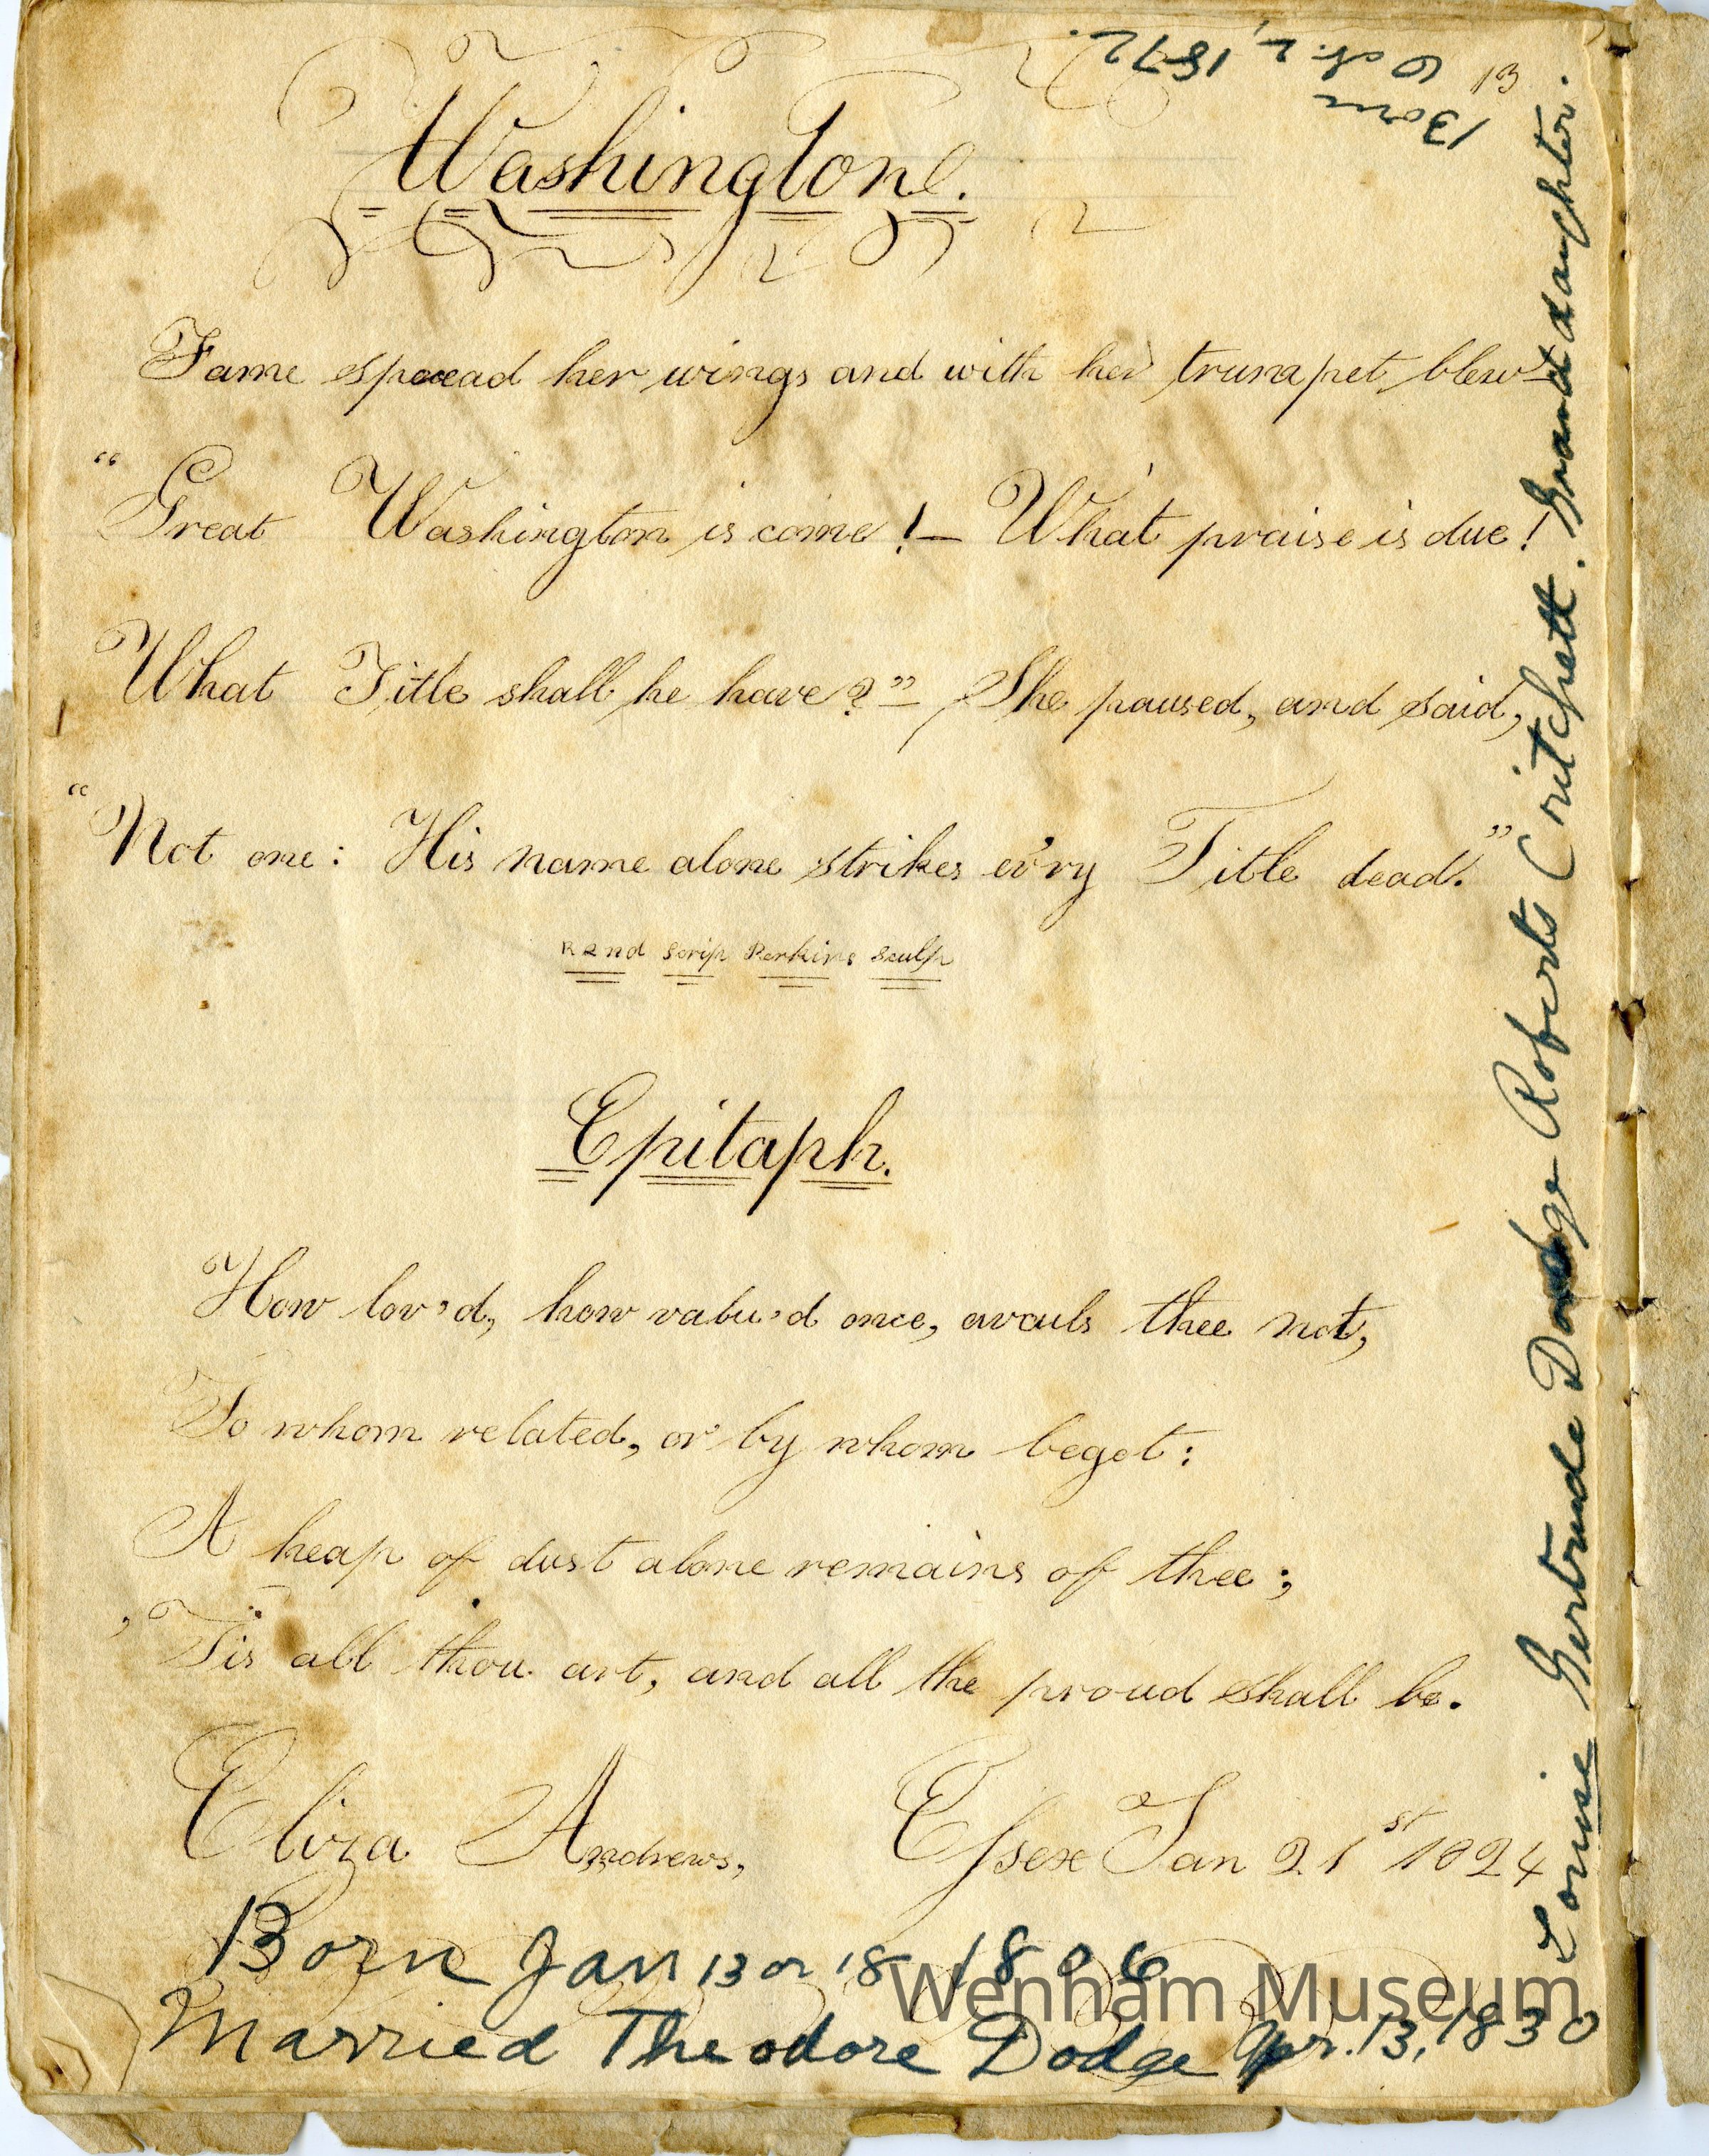 Washington.
Fame spread her wings and with her trumpet blew
"Great Washington is come! — What praise is due!
What Title shall he have?" — She paused, and said,
"Not one: His name alone strikes ev'ry Title dead."
Rand scrip Perkins sculp
Epitaph.
How lov'd, how valu'd once, avails thee not,
To whom related, or by whom begot:
A heap of dust alone remains of thee;
'Tis all thou art, and all the proud shall be.
Eliza Andrews, Essex Jan 21st 1824
Born Jan 13 or 18 1806
Married Theodore Dodge Apr. 13, 1830
Louise Gertrude Dodge Roberts Critchett. Granddaughter.
Born
Oct. 2, 1872.
13
Wenham Museum